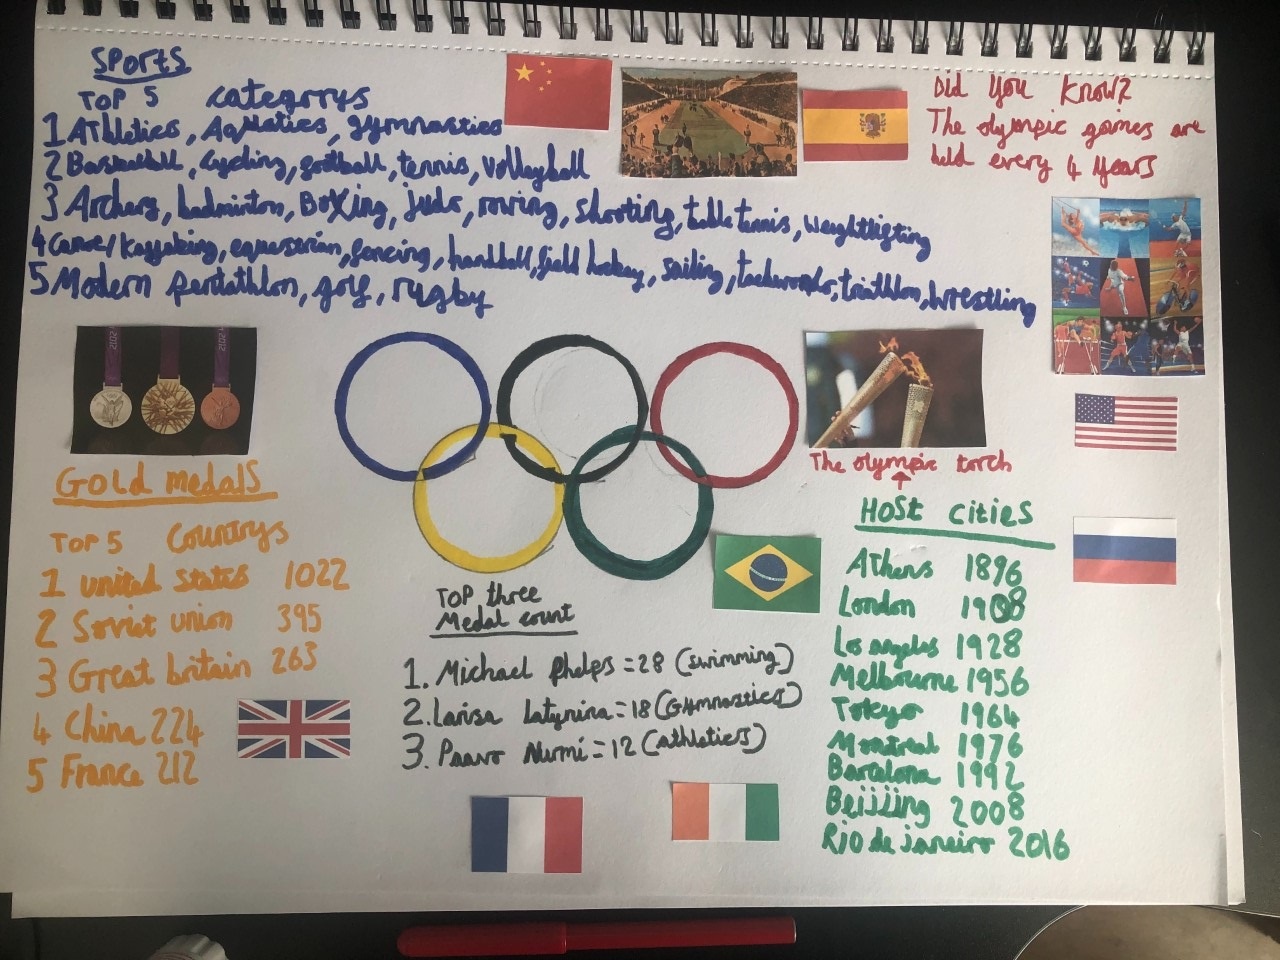 Sports
Top 5 categorys
1 Athletics, Aquatics, gymnastics
2 Basketball, cycling, football, tennis, volleyball
3 Archery, badminton, Boxing, judo, rowing, shooting, table tennis, weightlifting
4 Canoe/kayaking, equestrian, fencing, handball, field hockey, sailing, taekwondo, triathlon, wrestling
5 Modern pentathlon, golf, rugby
Did you know?
The olympic games are
held every 4 years
2012
2012
The olympic torch
Gold medals
Top 5 Countrys
1 united states 1022
2 Soviet union 395
3 Great britain 263
4 China 224
5 France 212
Top three
Medal count
1. Michael Phelps = 28 (swimming)
2. Larisa Latynina = 18 (Gymnastics)
3. Paavo Nurmi = 12 (athletics)
Host cities
Athens 1896
London 1908
Los angeles 1928
Melbourne 1956
Tokyo 1964
Montreal 1976
Barcelona 1992
Beijjing 2008
Rio de janeiro 2016